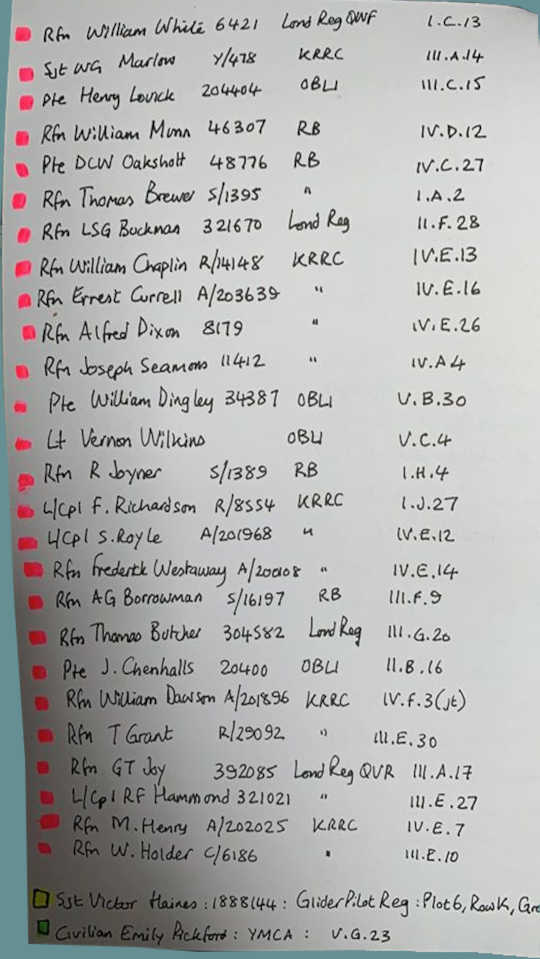 Rfn William White 6421 Lond Reg QWF I.C.13
Sjt WG Marlow Y/478 KRRC III.A.14
Pte Henry Lovick 204404 OBLI III.C.15
Rfn William Munn 46307 RB IV.D.12
Pte DCW Oakshott 48776 RB IV.C.27
Rfn Thomas Brewer S/1395 " I.A.2
Rfn LSG Buckman 321670 Lond Reg II.F.28
Rfn William Chaplin R/14148 KRRC IV.E.13
Rfn Ernest Currell A/203639 " IV.E.16
Rfn Alfred Dixon 8179 " IV.E.26
Rfn Joseph Seamons 11412 " IV.A4
Pte William Dingley 34387 OBLI V.B.30
Lt Vernon Wilkins OBLI V.C.4
Rfn R Joyner S/1389 RB I.H.4
L/Cpl F. Richardson R/8554 KRRC I.J.27
L/Cpl S.Royle A/201968 " IV.E.12
Rfn Frederick Westaway A/200108 " IV.E.14
Rfn AG Borrowman S/16197 RB III.F.9
Rfn Thomas Butcher 304582 Lond Reg III.G.20
Pte J. Chenhalls 20400 OBLI II.B.16
Rfn William Dawson A/201896 KRRC IV.F.3(jt)
Rfn T Grant R/29092 " III.E.30
Rfn GT Joy 392085 Lond Reg QVR III.A.17
L/Cpl RF Hammond 321021 " III.E.27
Rfn M.Henry A/202025 KRRC IV.E.7
Rfn W.Holder C/6186 " III.E.10
Sjt Victor Haines : 1888144 : Glider Pilot Reg : Plot 6, Row K, Gr
Civilian Emily Pickford : YMCA : V.G.23